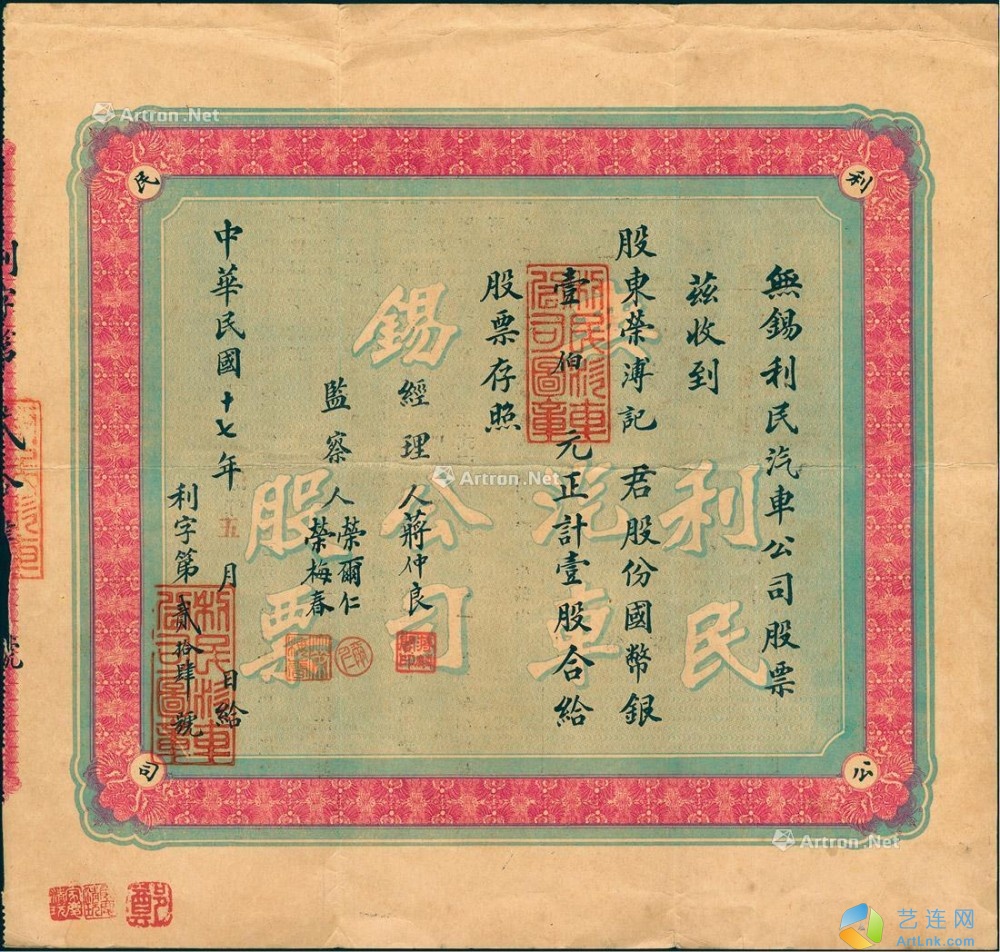 無錫利民汽車公司股票
茲收到
股東榮溥記 君股份國幣銀
壹伯元正計壹股合給
股票存照
經理人蔣仲良
監察人榮爾仁
榮梅春
中華民國十七年五月 日給
利字第貳拾肆號
利
民
公
司
錫
利民
汽車
公司
股票
利民汽車
公司圖章
利民汽車
公司圖章
鄭
號
Artron.Net
Artron.Net
Artron.Net
艺连网
ArtLnk.com